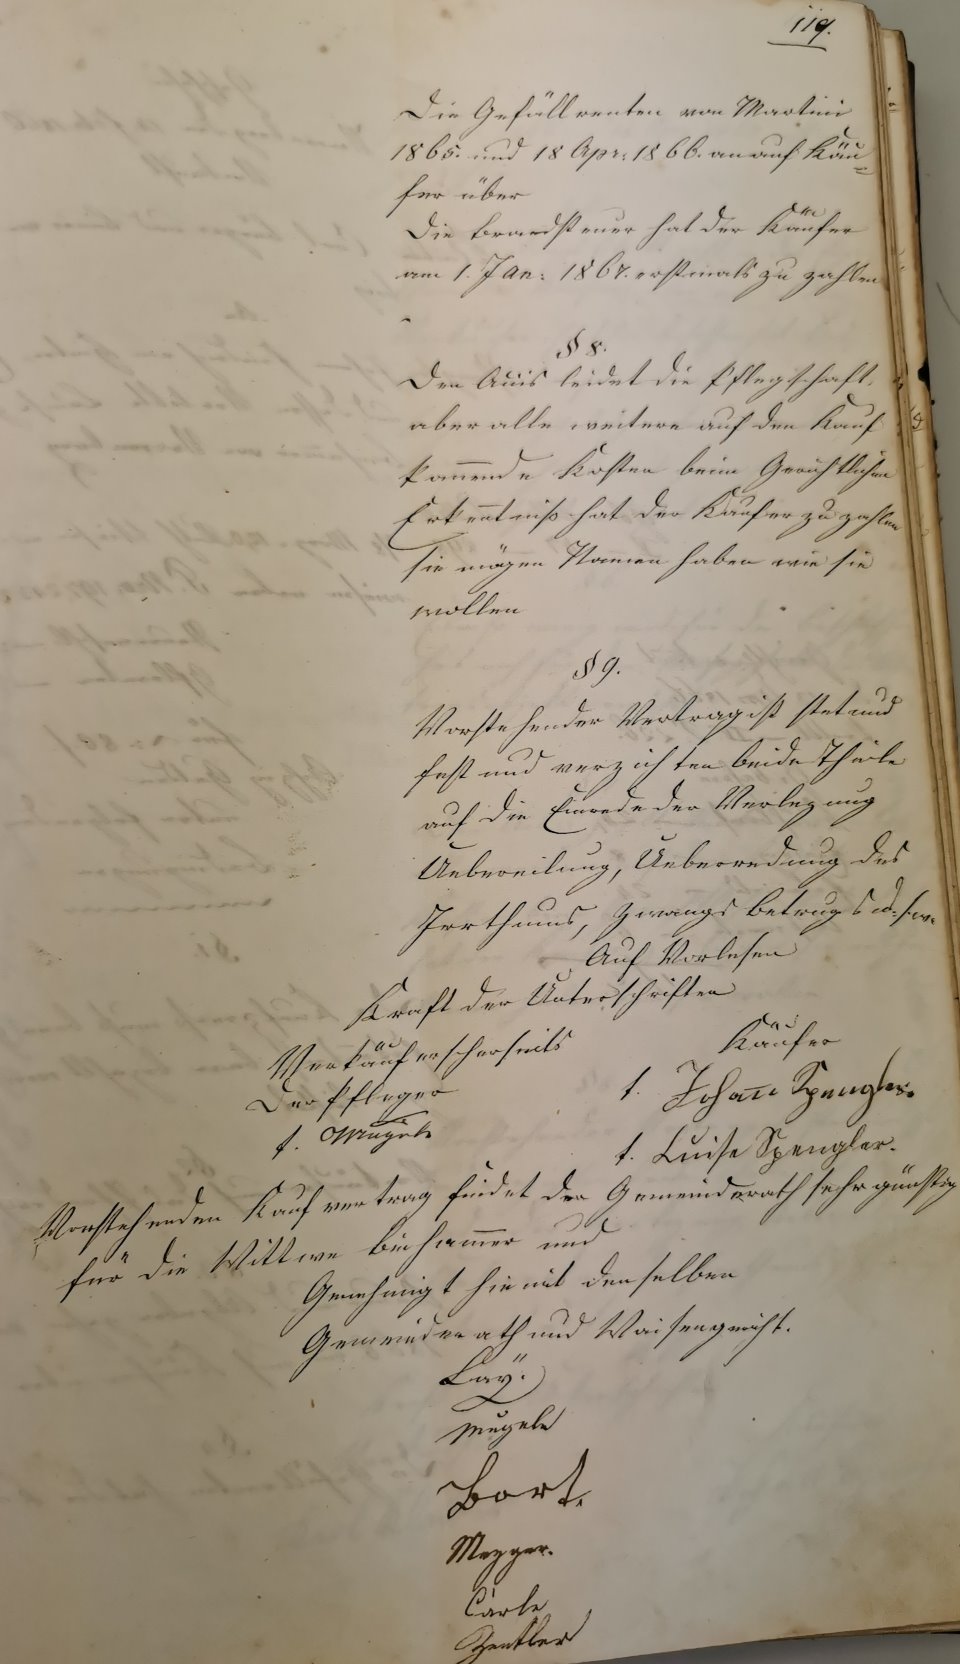 119.
Die Gefällrenten von Martini
1865. und 18 Apr: 1866. an auf Käu=
fer über
Die Brandsteuer hat der Käufer
am 1. Jan: 1867. erstmals zu zahlen
§ 8.
Den Accis leidet die Pflegschaft,
aber alle weitere auf den Kauf
kommende Kosten beim Gerichtlichen
Erkenntniß hat der Käufer zu zahlen
sie mögen Namen haben wie sie
wollen
§ 9.
Vorstehender Vertrag ist stet und
fest und verzichten beide Theile
auf die Einrede der Verlezung
Uebereilung, Ueberredung des
Irrthums, Zwangs betrugs u. s. w.
Auf Vorlesen
Kraft der Unterschriften
Verkäuferscherseits
Käufer
Der Pfleger
t. Johann Spengler.
t. Mugele
t. Luise Spengler.
Vorstehenden Kaufvertrag findet der Gemeinderath sehr günstig
für die Wittwe Beihammer und
Genehmigt hiemit denselben
Gemeinderath und Waisengericht.
Lay.
Mugele
Bort.
Mezger.
Carle